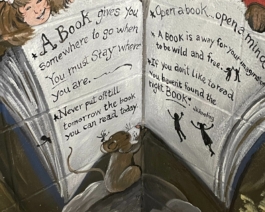 A Book gives you
somewhere to go when
You must Stay where
you are.
Never put off till
tomorrow the book
you can read today
Open a book, open a mind
A BOOK is a way for your imagination
to be wild and free.
If you don't like to read
You haven't found the
right BOOK